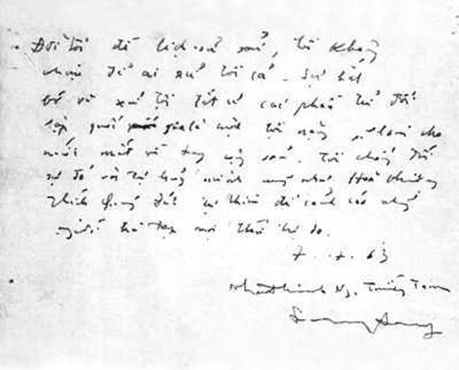 Đời tôi để lịch sử xử, tôi không
chịu để ai xử tôi cả - Sự bắt
bớ và xử tội tất cả các phần tử đối
lập quốc gia là một tội nặng sẽ làm cho
nước mất về tay cộng sản. Tôi chống đối
sự đó và tự huỷ mình cũng như Hoà thượng
Thích Quảng Đức tự thiêu để cảnh cáo những
người chà đạp mọi thứ tự do.
7. 7. 63
Nhất Linh Ng. Tường Tam